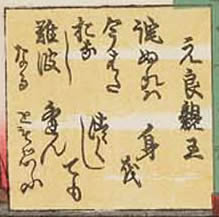 元良親王
詫ぬれは
今はた
おなし
難波
なる
身を
つくし
ても
逢ん
とそおもふ